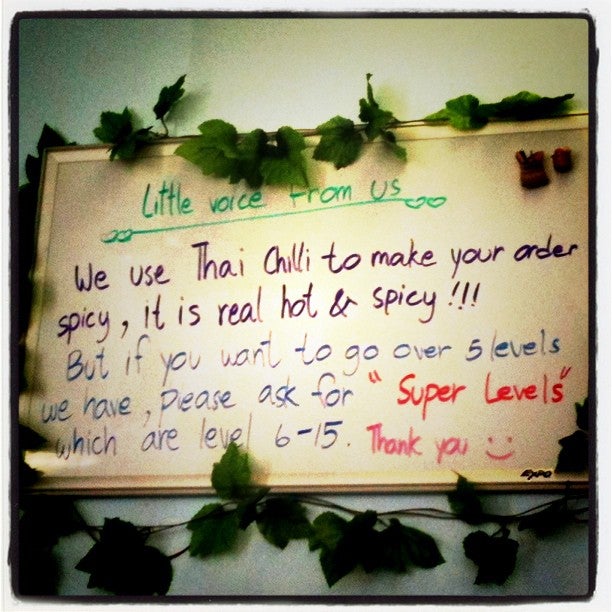 Little voice from us
We use Thai Chilli to make your order
spicy, it is real hot & spicy!!!
But if you want to go over 5 levels
we have, please ask for "Super Levels"
which are level 6-15. Thank you
EXPO